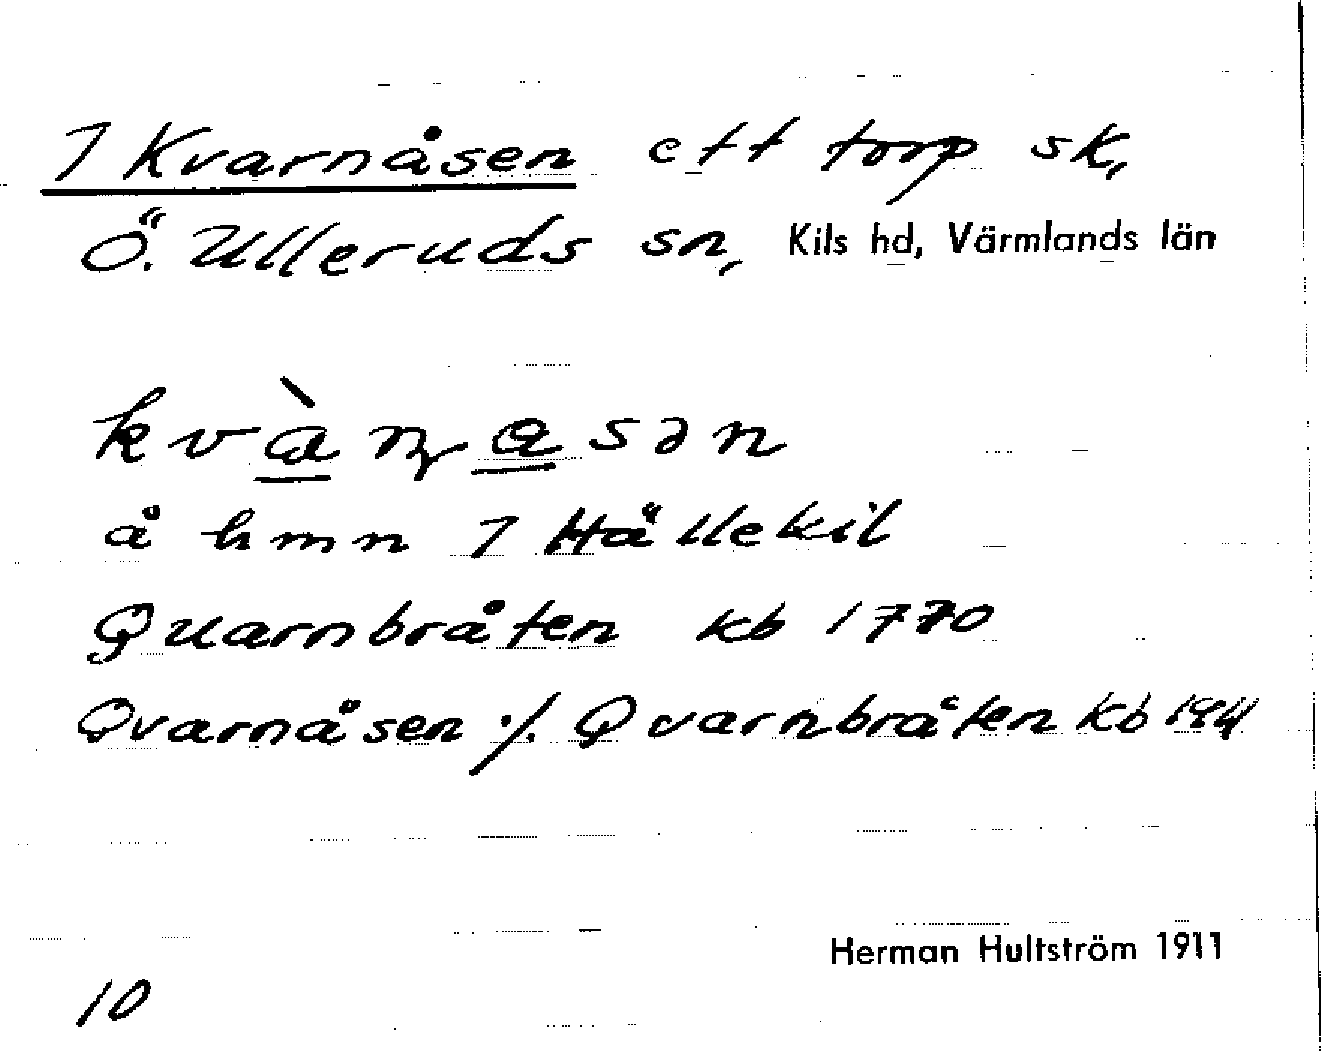 1 Kvarnåsen ett torp sk,
Ö. Ulleruds sn, Kils hd, Värmlands län
å hmn 1 Hällekil
Quarnbråten kb 1770
Qvarnåsen ./. Qvarnbråten kb
Herman Hultström 1911
10